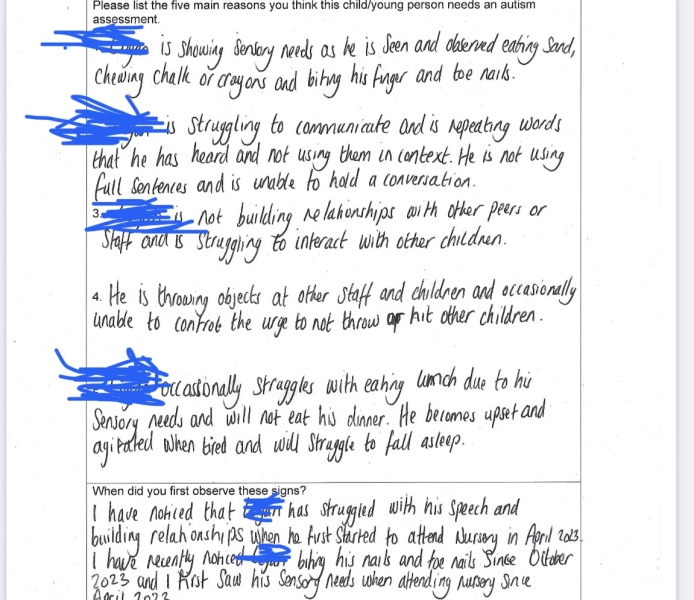 Please list the five main reasons you think this child/young person needs an autism
assessment.
is showing sensory needs as he is seen and observed eating sand,
chewing chalk or crayons and biting his finger and toe nails.
is struggling to communicate and is repeating words
that he has heard and not using them in context. He is not using
full sentences and is unable to hold a conversation.
3. is not building relationships with other peers or
staff and is struggling to interact with other children.
4. He is throwing objects at other staff and children and occasionally
unable to control the urge to not throw or hit other children.
occassionally struggles with eating lunch due to his
sensory needs and will not eat his dinner. He becomes upset and
agitated when tired and will struggle to fall asleep.
When did you first observe these signs?
I have noticed that has struggled with his speech and
building relationships when he first started to attend Nursery in April 2023.
I have recently noticed biting his nails and toe nails since October
2023 and I first saw his sensory needs when attending nursery since
April